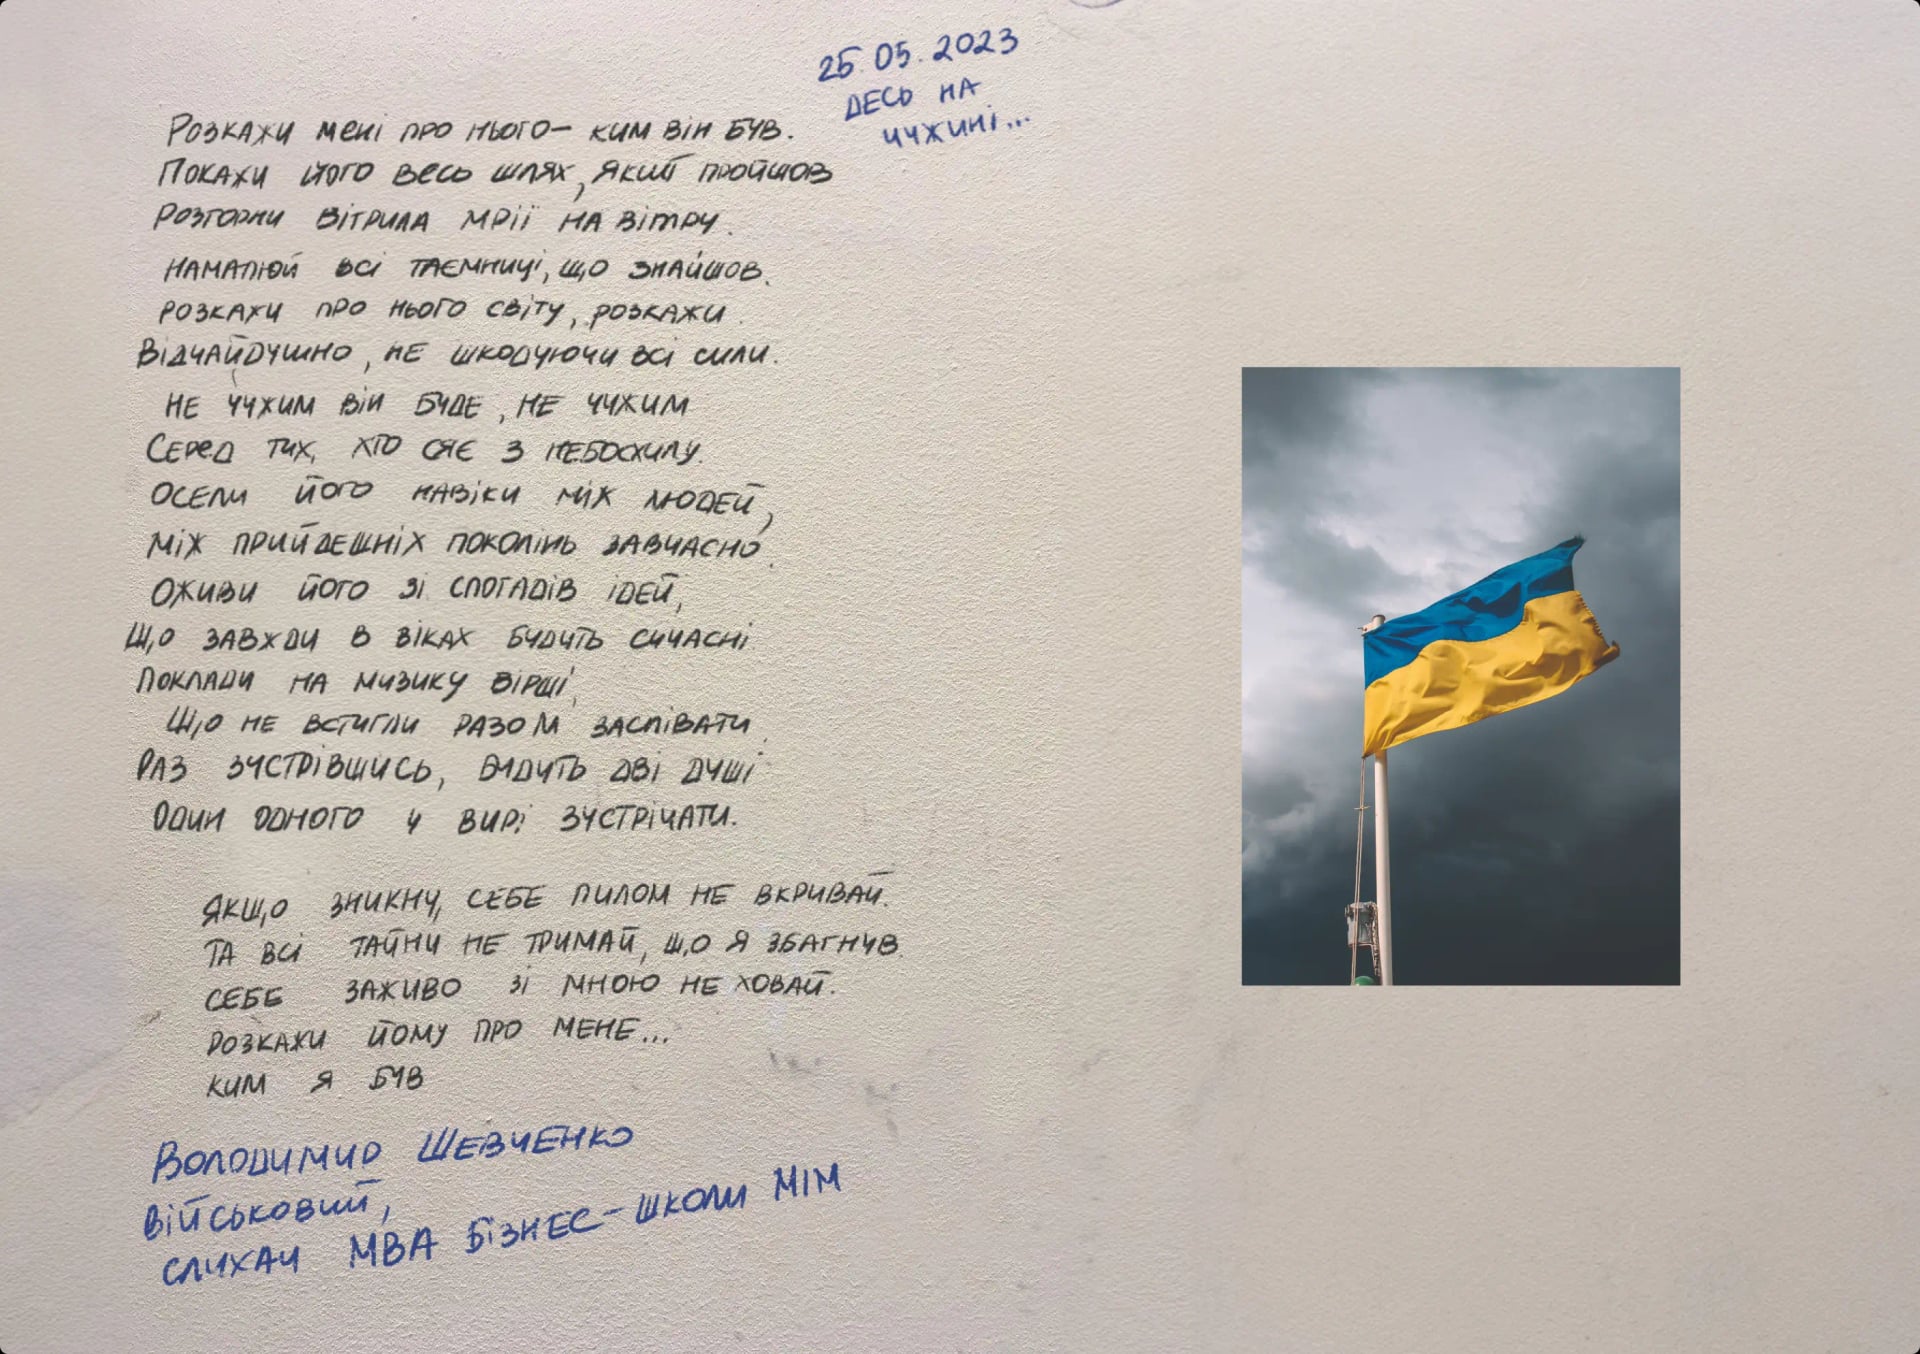 25.05.2023
ДЕСЬ НА
ЧУЖИНІ...
РОЗКАЖИ МЕНІ ПРО НЬОГО – КИМ ВІН БУВ.
ПОКАЖИ ЙОГО ВЕСЬ ШЛЯХ, ЯКИЙ ПРОЙШОВ
РОЗГОРНИ ВІТРИЛА МРІЇ НА ВІТРУ.
НАМАЛЮЙ ВСІ ТАЄМНИЦІ, ЩО ЗНАЙШОВ.
РОЗКАЖИ ПРО НЬОГО СВІТУ, РОЗКАЖИ.
ВІДЧАЙДУШНО, НЕ ШКОДУЮЧИ ВСІ СИЛИ.
НЕ ЧУЖИМ ВІН БУДЕ, НЕ ЧУЖИМ
СЕРЕД ТИХ, ХТО СЯЄ З НЕБОСХИЛУ.
ОСЕЛИ ЙОГО НАВІКИ МІЖ ЛЮДЕЙ,
МІЖ ПРИЙДЕШНІХ ПОКОЛІНЬ ЗАВЧАСНО.
ОЖИВИ ЙОГО ЗІ СПОГАДІВ ІДЕЙ,
ЩО ЗАВЖДИ В ВІКАХ БУДУТЬ СУЧАСНІ
ПОКЛАДИ НА МУЗИКУ ВІРШІ,
ЩО НЕ ВСТИГЛИ РАЗОМ ЗАСПІВАТИ.
РАЗ ЗУСТРІВШИСЬ, БУДУТЬ ДВІ ДУШІ
ОДИН ОДНОГО У ВИРІ ЗУСТРІЧАТИ.
ЯКЩО ЗНИКНУ, СЕБЕ ПИЛОМ НЕ ВКРИВАЙ.
ТА ВСІ ТАЙНИ НЕ ТРИМАЙ, ЩО Я ЗБАГНУВ.
СЕБЕ ЗАЖИВО ЗІ МНОЮ НЕ ХОВАЙ.
РОЗКАЖИ ЙОМУ ПРО МЕНЕ...
КИМ Я БУВ
ВОЛОДИМИР ШЕВЧЕНКО
ВІЙСЬКОВИЙ,
СЛУХАЧ МВА БІЗНЕС-ШКОЛИ МІМ